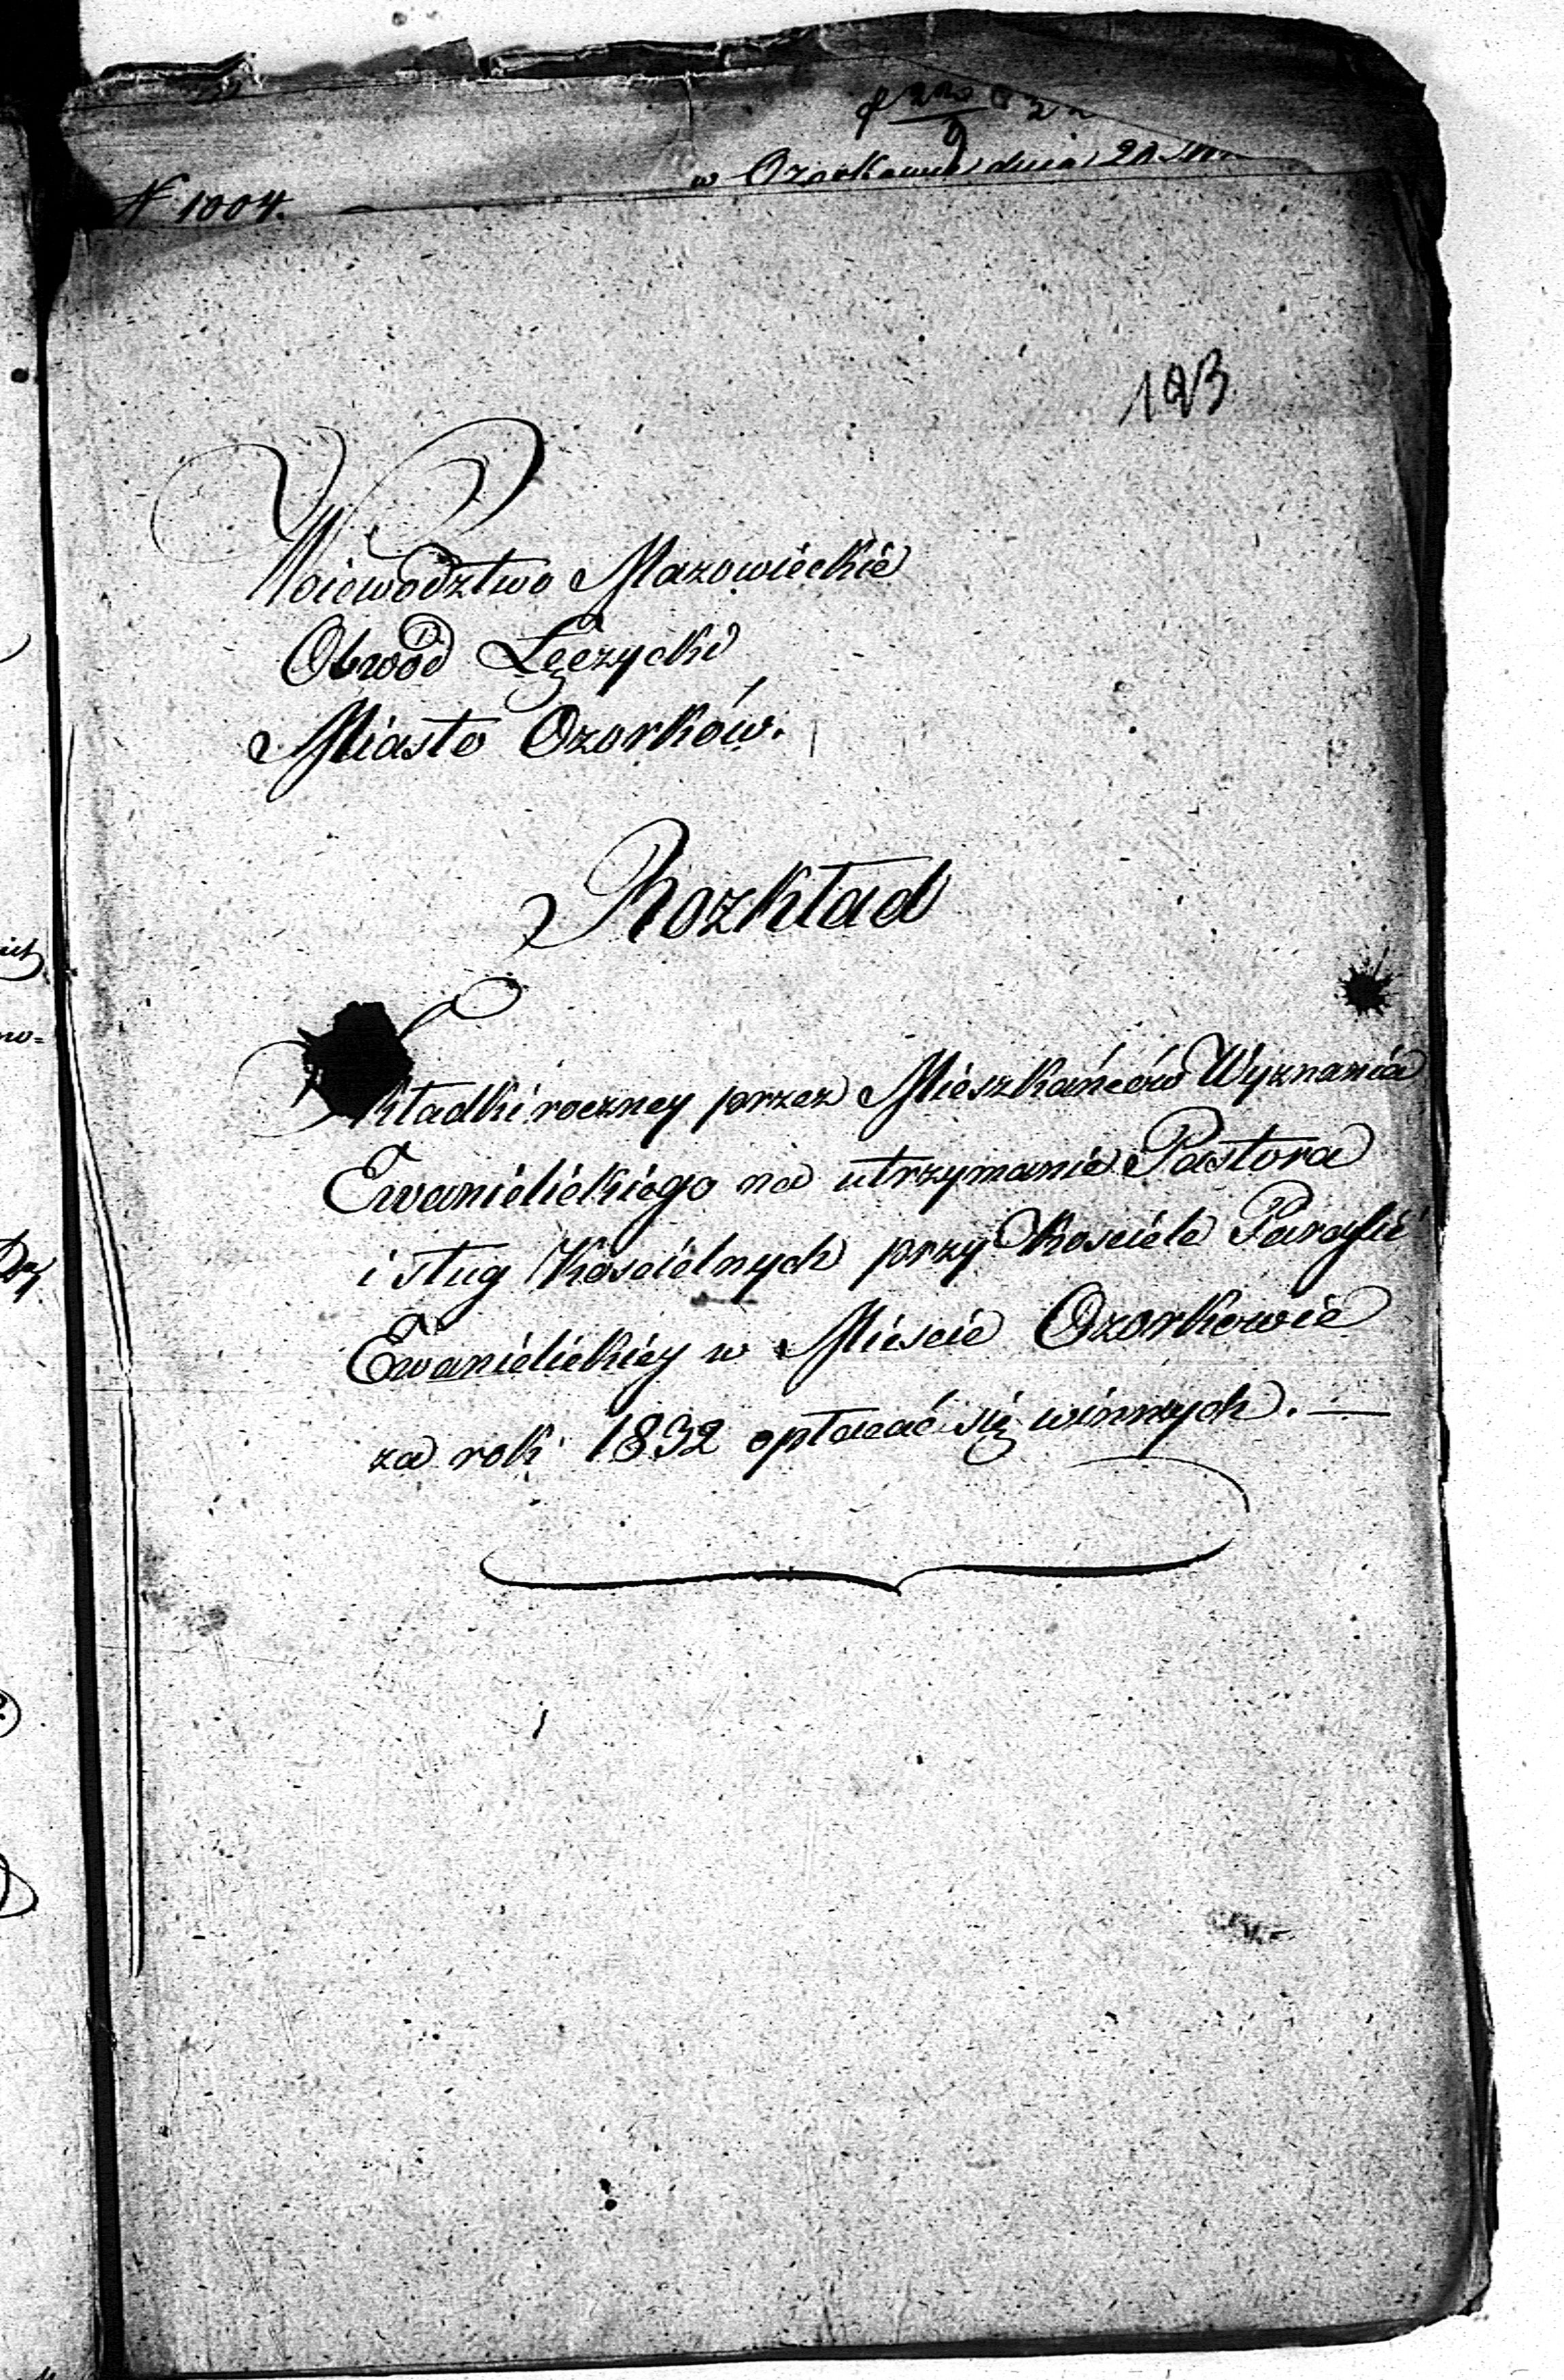 N 1004.
w Ozorkowie dnia 20
123
Woiewództwo Mazowieckie
Obwód Łęczycki
Miasto Ozorków.
Rozkład
Składki roczney przez Mieszkańców Wyznania
Ewanielickiego na utrzymanie Pastora
i sług Kościelnych przy Kościele Parafii
Ewanielickiey w Mieście Ozorkowie
za rok 1832 opłacać się winnych. —